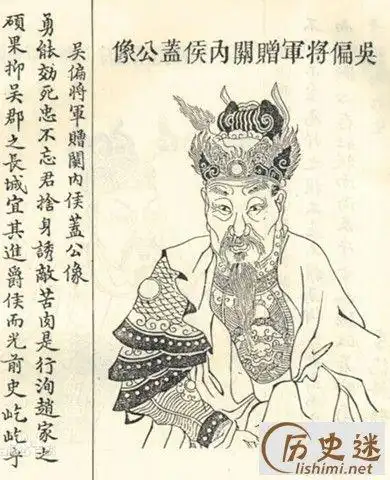 吳偏將軍贈關內侯蓋公像
吳偏將軍贈關內侯蓋公像
勇能効死忠不忘君捨身誘敵苦肉是行洵趙家之
碩果抑吳郡之長城宜其進爵侯而光前史屹屹乎
历史迷
lishimi.net